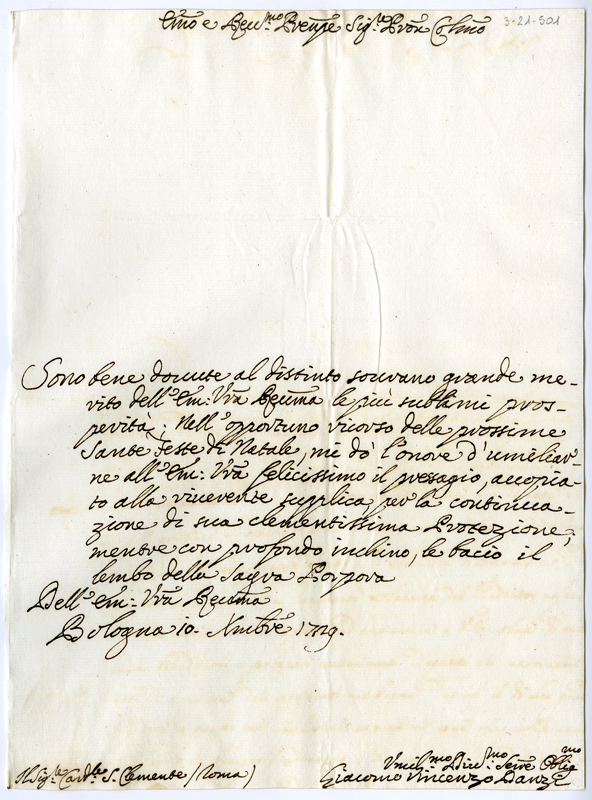 Em̃o e Reu.mo Prenpẽ Sig.re Pron̄ Col̃mo
3-21-501
Sono bene douute al distinto sourano grande me-
rito dell'Em: Vrã Reuma le più sublimi pros-
perità; Nell'opportuno ricorso delle prossime
Sante Feste di Natale, mi dò l'onore d'umeliar-
ne all'Em: Vrã felicissimo il presagio, accopia-
to alla riuerente supplica per la continua-
zione di sua clementissima Protezione,
mentre con profondo inchino, le bacio il
lembo della Sagra Porpora
Dell'Em: Vrã Reuma
Bologna 10. Xmbrẽ 1729.
Vmil.mo Diu.mo Serrẽ Oblig.mo
Il Sig.re Card.le S. Clemente (Roma)
Giacomo Vincenzo